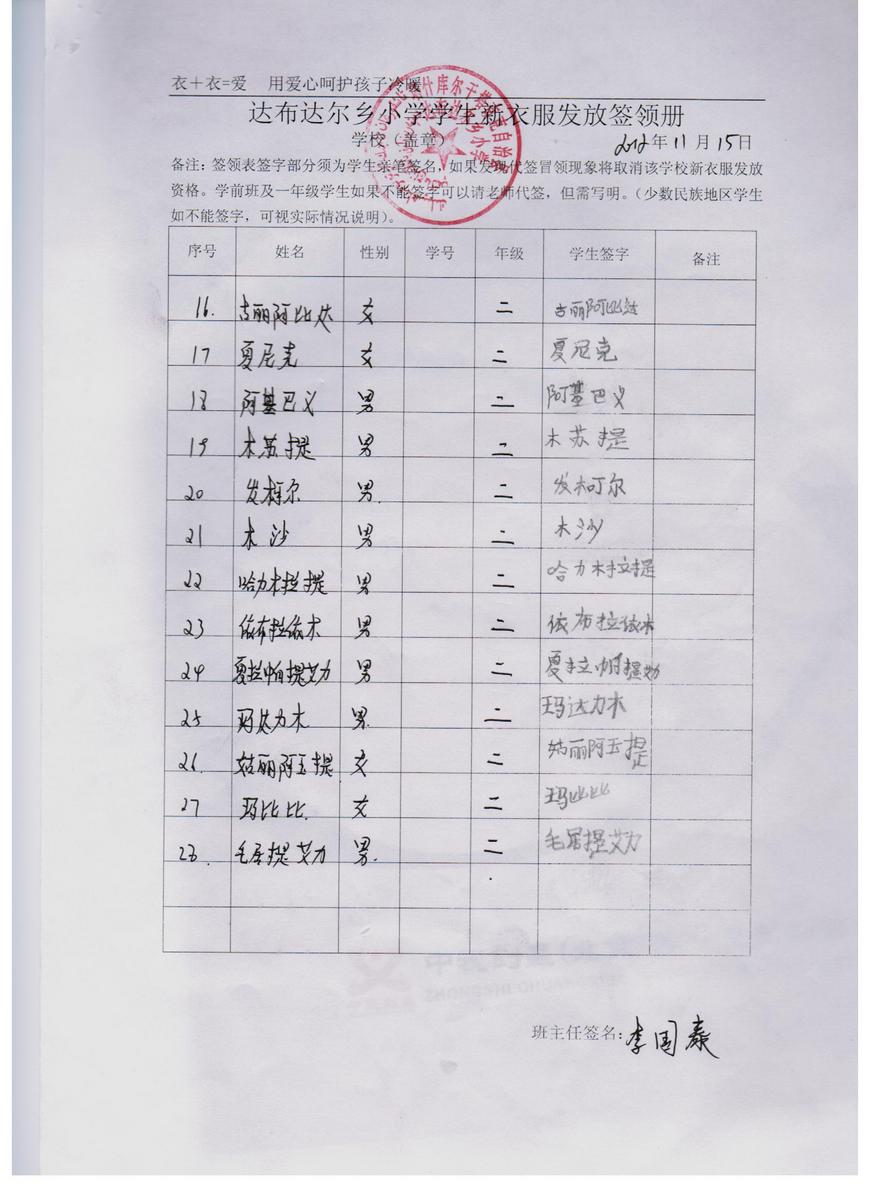 衣+衣=爱 用爱心呵护孩子冷暖
达布达尔乡小学学生新衣服发放签领册
学校(盖章) 2012年11月15日
备注:签领表签字部分须为学生亲笔签名,如果发现代签冒领现象将取消该学校新衣服发放
资格。学前班及一年级学生如果不能签字可以请老师代签,但需写明。(少数民族地区学生
如不能签字,可视实际情况说明)。
序号 姓名 性别 学号 年级 学生签字 备注
16. 古丽阿比达 女 二 古丽阿比达
17 夏尼克 女 二 夏尼克
18 阿基巴义 男 二 阿基巴义
19 木苏提 男 二 木苏提
20 发木可尔 男. 二 发木可尔
21 木沙 男 二 木沙
22 哈力木拉提 男 二 哈力木拉提
23 依布拉依木 男 二 依布拉依木
24 夏拉帕提艾力 男 二 夏拉帕提艾力
25 玛达力木 男. 二 玛达力木
26. 姑丽阿玉提 女 二 姑丽阿玉提
27 玛比比. 女 二 玛比比
28. 毛居提艾力 男. 二 毛居提艾力
班主任签名:李国泰